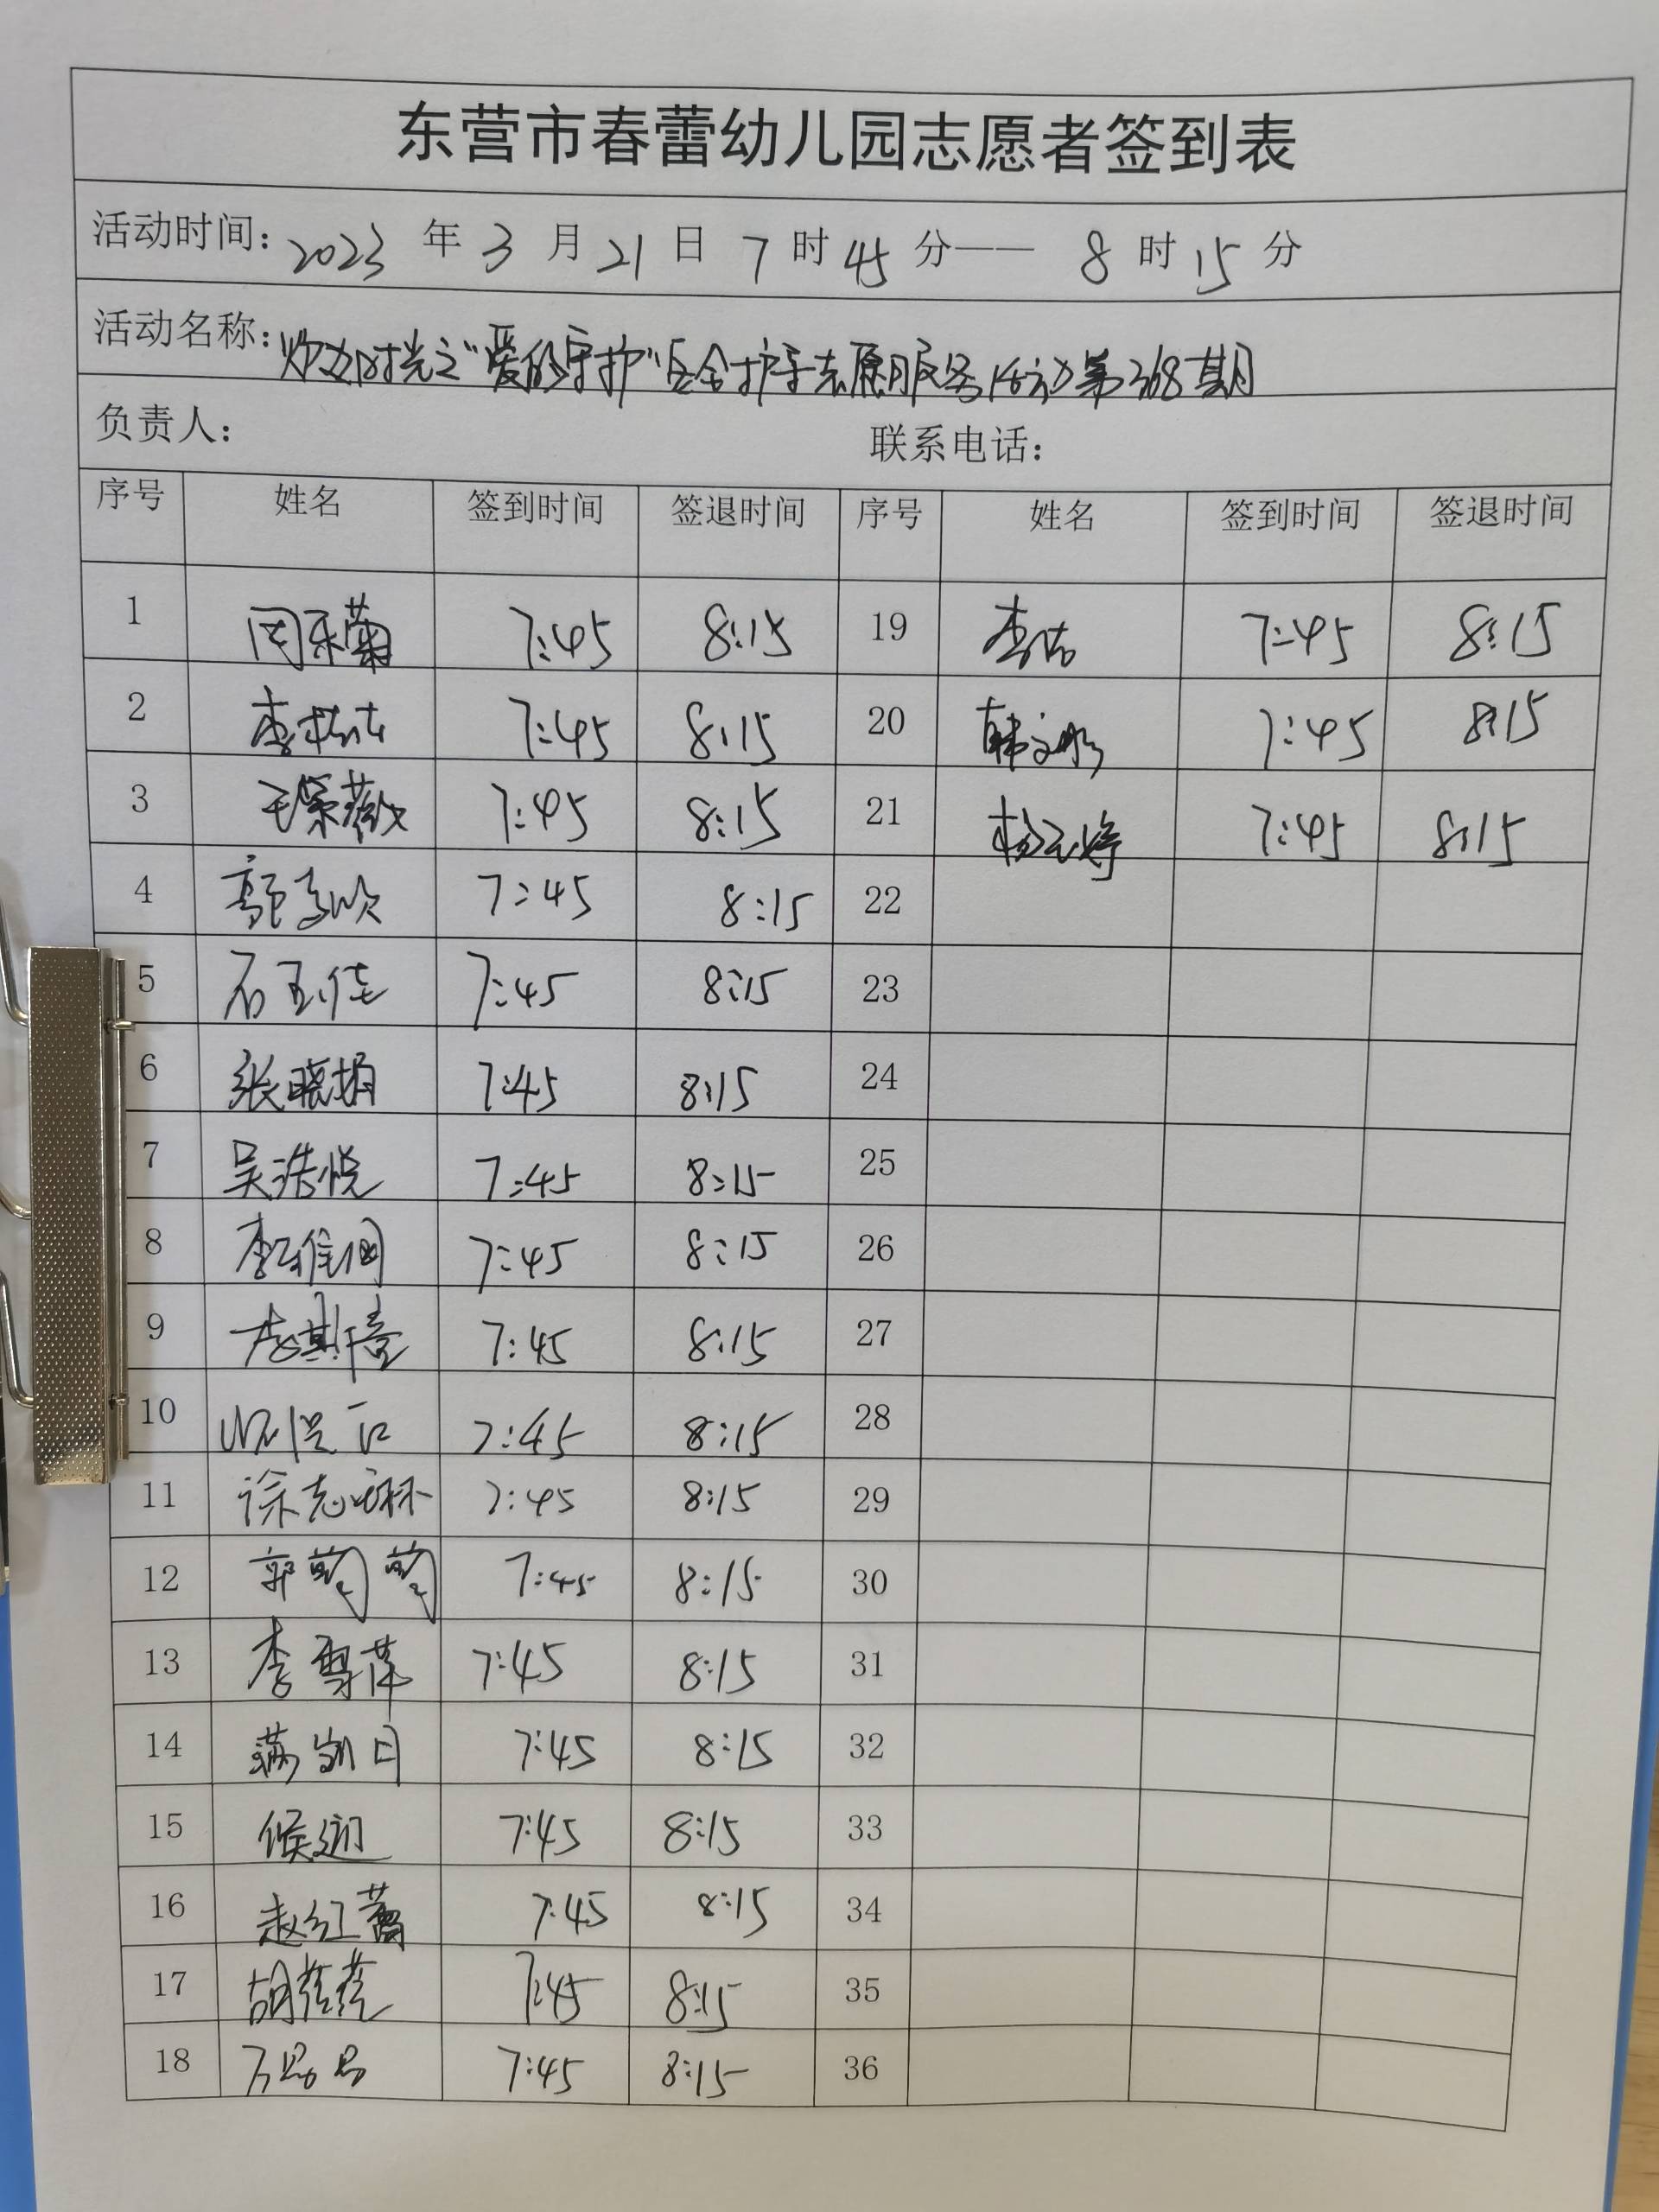 东营市春蕾幼儿园志愿者签到表
活动时间: 2023 年 3 月 21 日 7 时 45 分—— 8 时 15 分
活动名称: 时光之"爱的守护"安全护学志愿服务活动第368期
负责人: 联系电话:
序号 姓名 签到时间 签退时间 序号 姓名 签到时间 签退时间
1 7:45 8:15 19 7:45 8:15
2 7:45 8:15 20 7:45 8:15
3 王紫薇 7:45 8:15 21 7:45 8:15
4 7:45 8:15 22
5 石玉佳 7:45 8:15 23
6 张晓娟 7:45 8:15 24
7 吴浩悦 7:45 8:15 25
8 7:45 8:15 26
9 7:45 8:15 27
10 7:45 8:15 28
11 徐志琳 7:45 8:15 29
12 郭 7:45 8:15 30
13 李雪萍 7:45 8:15 31
14 7:45 8:15 32
15 7:45 8:15 33
16 赵红蕾 7:45 8:15 34
17 7:45 8:15 35
18 7:45 8:15 36